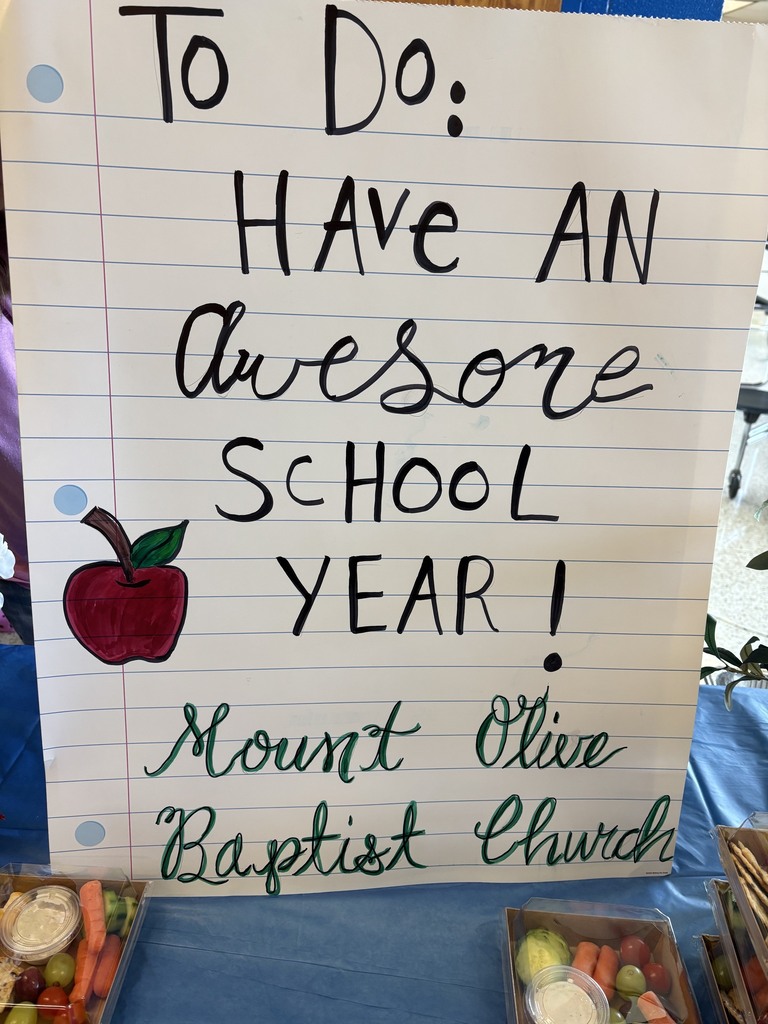 To Do:
HAve AN
awesome
ScHOOL
YEAR!
Mount Olive
Baptist Church